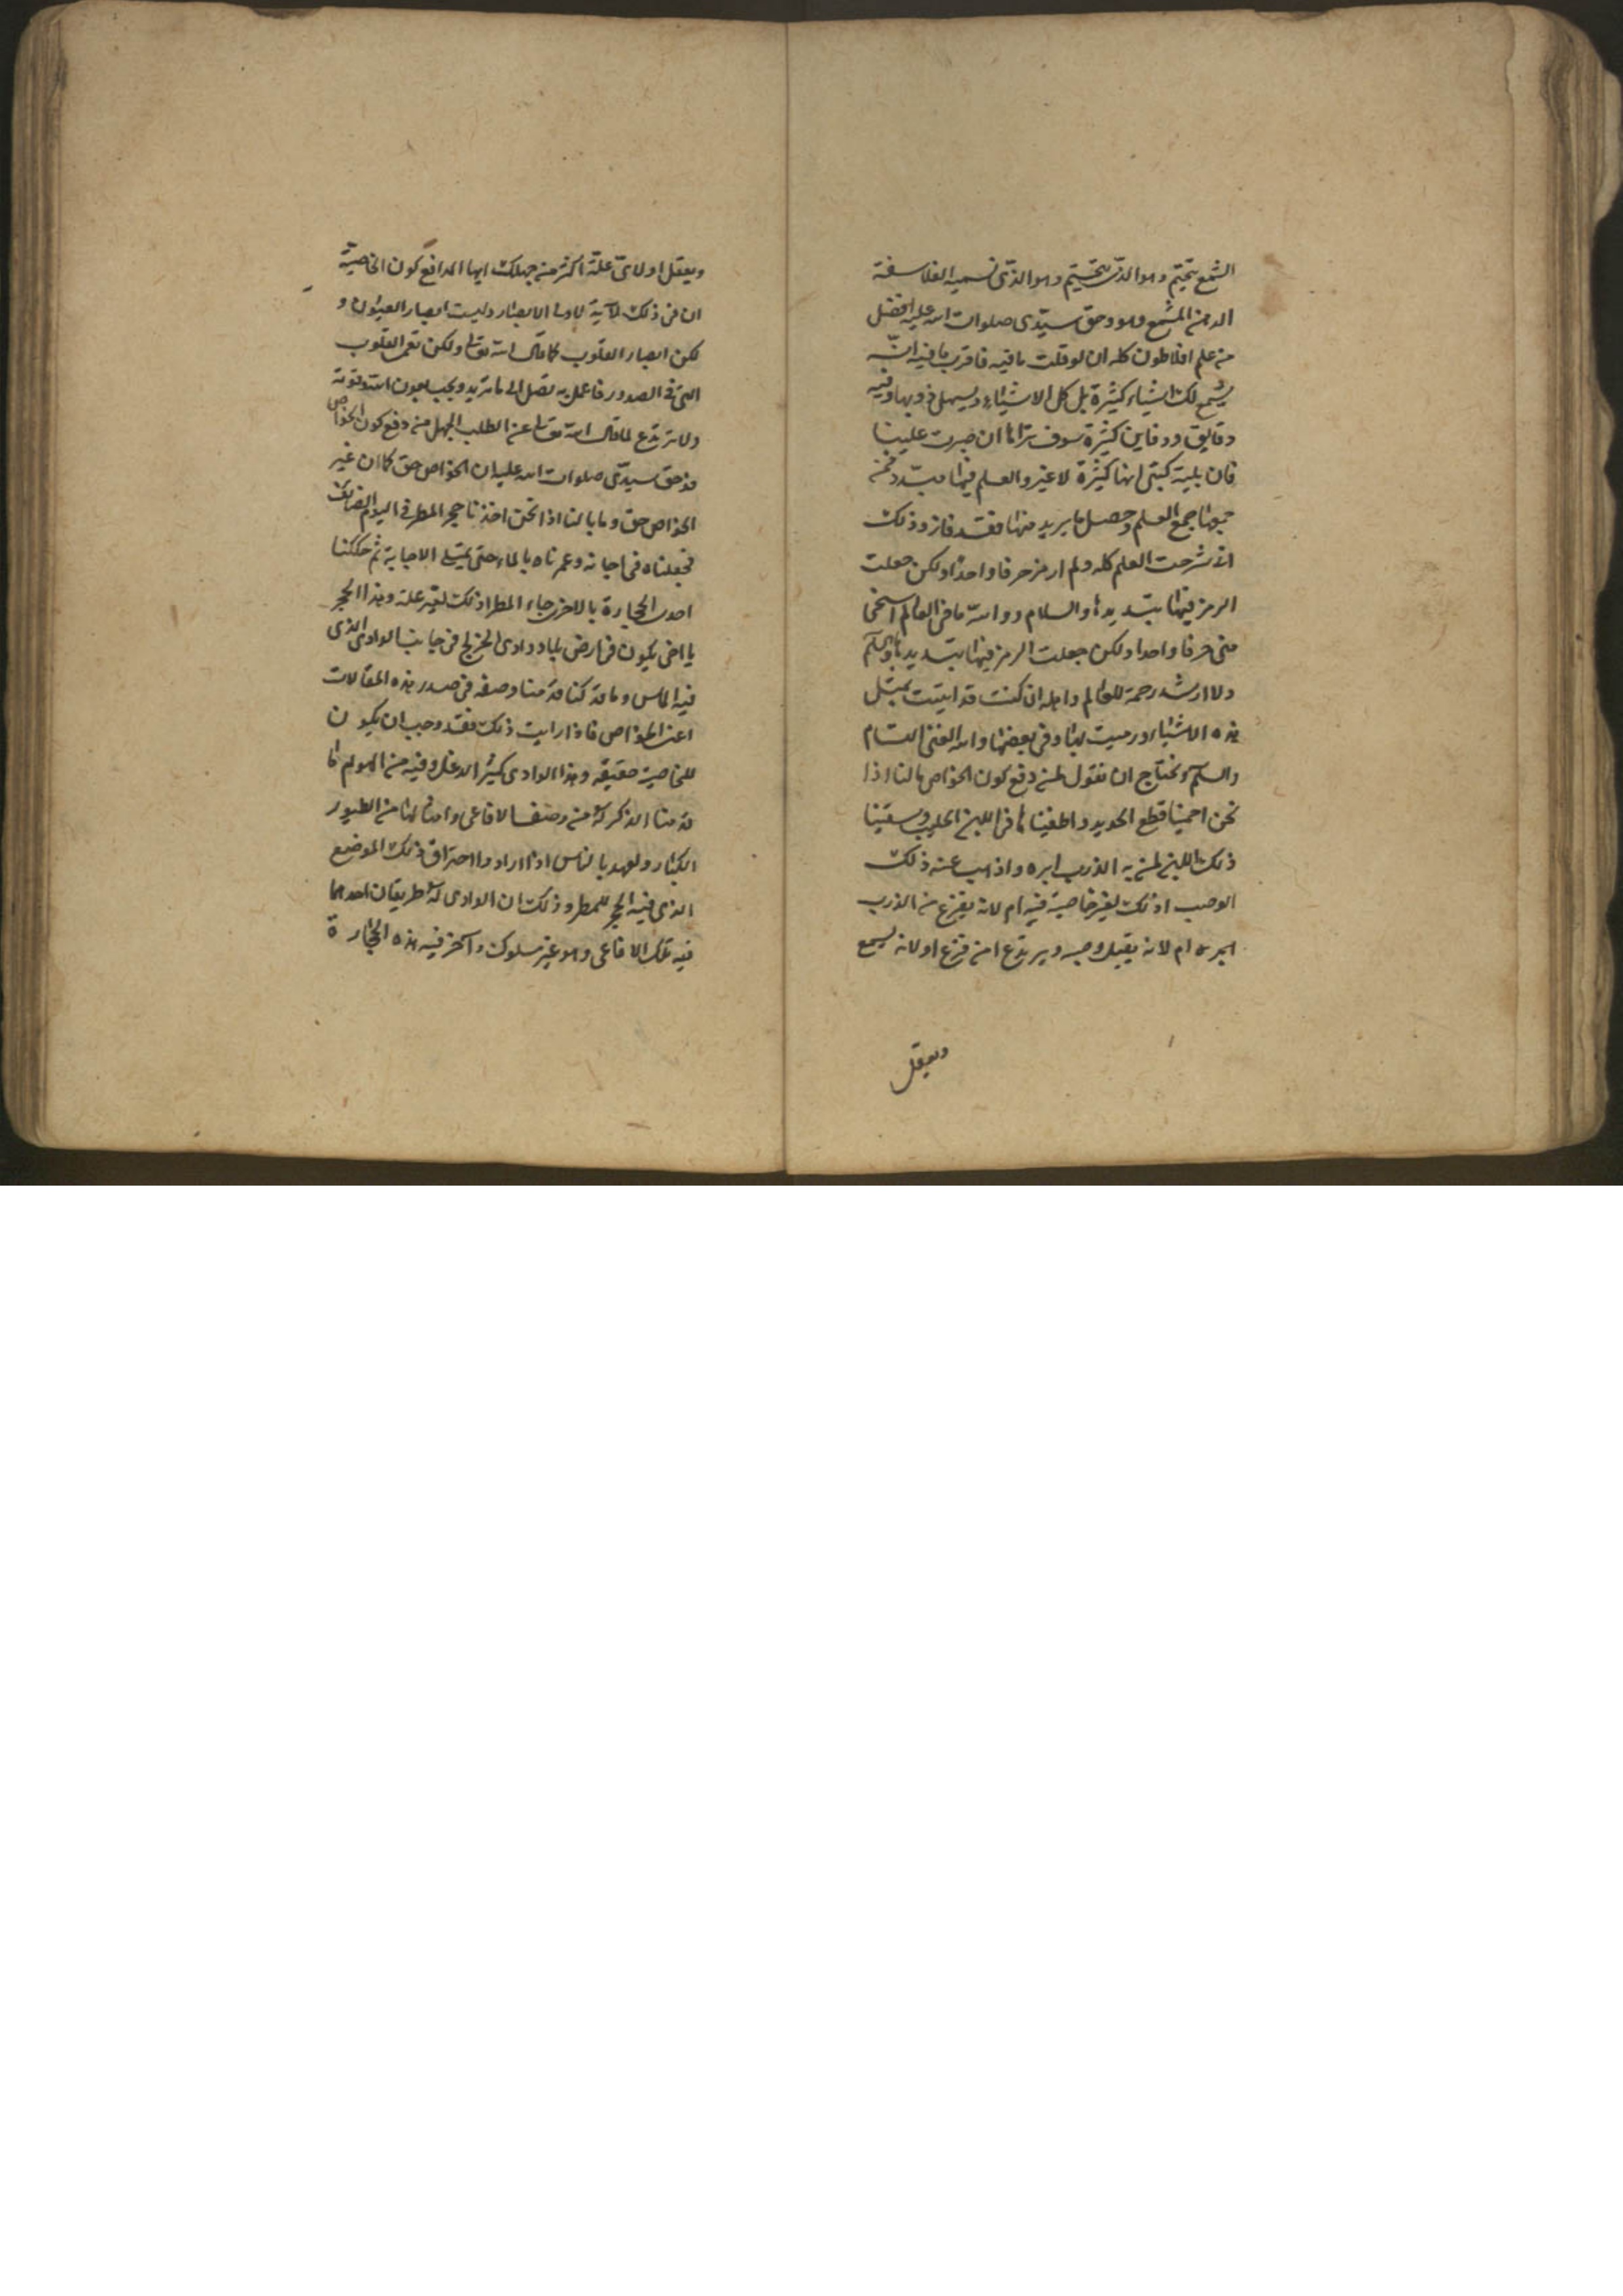 الشمع يختم وهو الذى يختم وهو الذى نسميه الفلاسفة
الدهن المشمع وهو وحق سيدى صلوات الله عليه افضل
من علم افلاطون كله ان لو قلت ما فيه فاقرب ما فيه انه
يشمع لك اشياء كثيرة بل كل الاشياء ويسهل ذوبها وفيه
دقايق ودفاين كثيرة سوف تراها ان صبرت علينا
فان بلية كتبى انها كثيرة لا غير والعلم فيها مبدد فمن
جمعها جمع العلم وحصل ما يريد منها فقد فاز وذلك
انى شرحت العلم كله ولم ارمز حرفا واحدا ولكن جعلت
الرمز فيها بتبديدها والسلام ووالله ما فى العالم اسخى
منى حرفا واحدا ولكن جعلت الرمز فيها بتبديدها والسلم
ولا ارشد رحمة للعالم واعلم ان كنت قد اتيت بمثل
هذه الاشياء ورميت بها وفى بعضها والله الغنى التام
والسلم ونحتاج ان نقول لمن دفع كون الخواص ما لنا اذا
نحن احمينا قطع الحديد واطفيناها فى اللبن الحليب وسقينا
ذلك اللبن لمن به الذرب ابره واذهب عنه ذلك
الوصب اذلك لغير خاصية فيه ام لانه يفزع من الذرب
ام لانه يقبل وصيه ويرتدع ان فزع او لانه يسمع
ويعقل
ويعقل او لاى علة اكثر من جهلك ايها الدافع كون الخاصية
ان فى ذلك لآية لاولى الابصار وليست ابصار العيون و
لكن ابصار القلوب كما قال الله تعالى ولكن تعمى القلوب
التى فى الصدور فاعمل به تصل الى ما تريد وتحب بعون الله وقوته
ولا ترتدع لما قال الله تعالى عن الطلب الجهل من دفع كون الخواص
فوحق سيدى صلوات الله عليه ان الخواص حق كما ان غير
الخواص حق وما بالنا اذا نحن اخذنا حجر المطر فى اليوم الصائف
فجعلناه فى اجانة وغمرناه بالماء حتى يمتلى الاجانة ثم حككنا
احدى الحجارة بالاخرى جاء المطر اذلك لغير علة وهذا الحجر
يا اخى يكون فى ارض بلاد وادى الخزلج فى جانب الوادى الذى
فيه الماس وما قد كنا قدمنا وصفه فى صدر هذه المقالات
اعنى الخواص فاذا رايت ذلك فقد وجب ان يكون
للخاصية حقيقة وهذا الوادى كثير الدغل وفيه من الهوام ما
قدمنا الذكر له من وصف الافاعى وامثالها من الطيور
الكبار ولعهد بالناس اذا ارادوا احتراق ذلك الموضع
الذى فيه الحجر للمطر وذلك ان الوادى له طريقان احدهما
فيه تلك الافاعى وهو غير مسلوك وآخر فيه هذه الحجارة